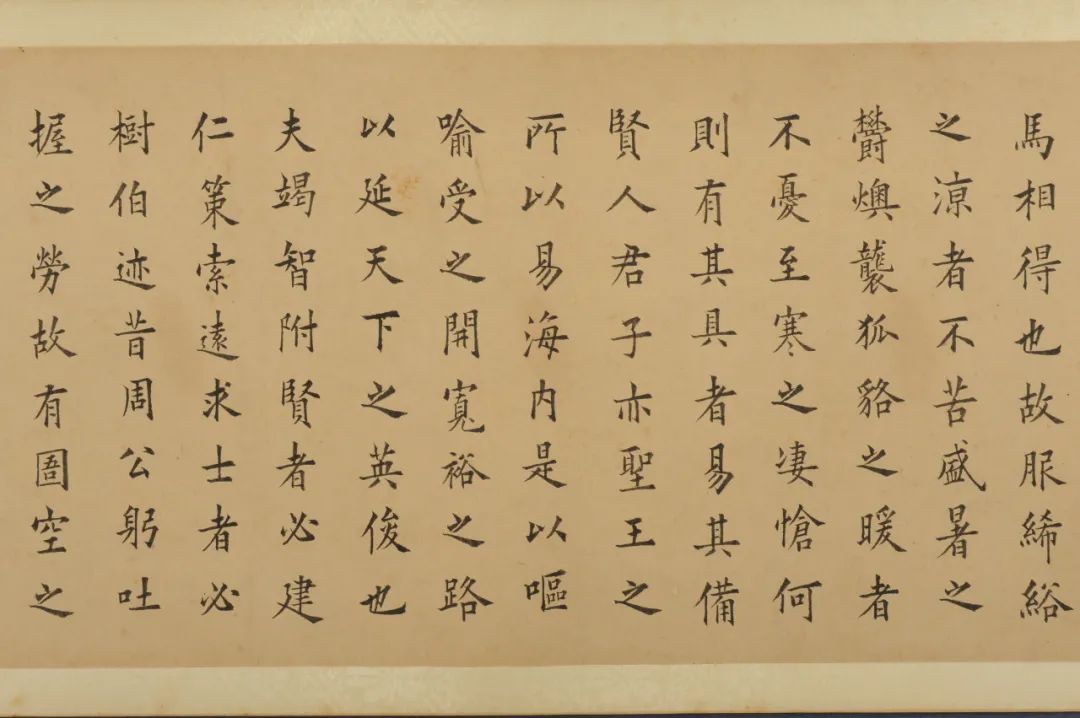 馬相得也故服絺綌
之涼者不苦盛暑之
欝燠襲狐貉之暖者
不憂至寒之凄愴何
則有其具者易其備
賢人君子亦聖王之
所以易海内是以嘔
喻受之開寬裕之路
以延天下之英俊也
夫竭智附賢者必建
仁策索遠求士者必
樹伯迹昔周公躬吐
握之勞故有圄空之